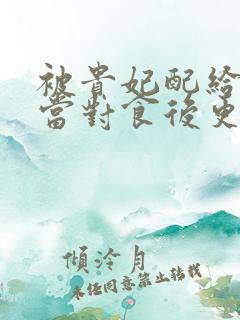 被貴妃配給
當對食後
傾泠月
未經同意禁止轉載